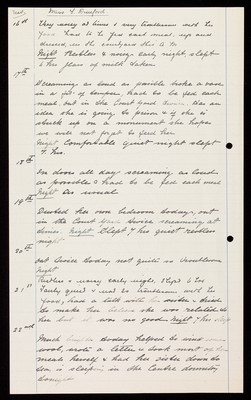 Miss F. Durford
16th Very noisy at times & very troublesome with her
food had to be fed each meal, up and
dressed, in the courtyard this A.M.
Night Restless & noisy early night, slept
6 hrs glass of milk taken
17th
Screaming as loud as possible broke a vase
in a fit of temper, had to be fed each
meal, out in the Court yard twice. Has an
idea she is going to prison & if she is
stuck up on a monument she hopes
we will not forget to feed her
Night Comfortable quiet night slept
7 hrs.
18th
In doors all day screaming as loud
as possible & had to be fed each meal
Night As usual
19th
Dusted her own bedroom today, out
in the Court twice screaming at
times. Night Slept 7 hrs quiet restless
night
20th
out twice today not quite so troublesome
Night
Restless & noisy early night, slept 6 hrs
21st Fairly good & not so troublesome with her
food, had a talk with her sister & tried
to make her believe she was related to
her but it was no good Night 7 hrs sleep
22nd
Much brighter today helped to wind
wool wrote a letter & took most of the
meals herself & had her sister down to
tea is sleeping in the Centre dormitory
tonight